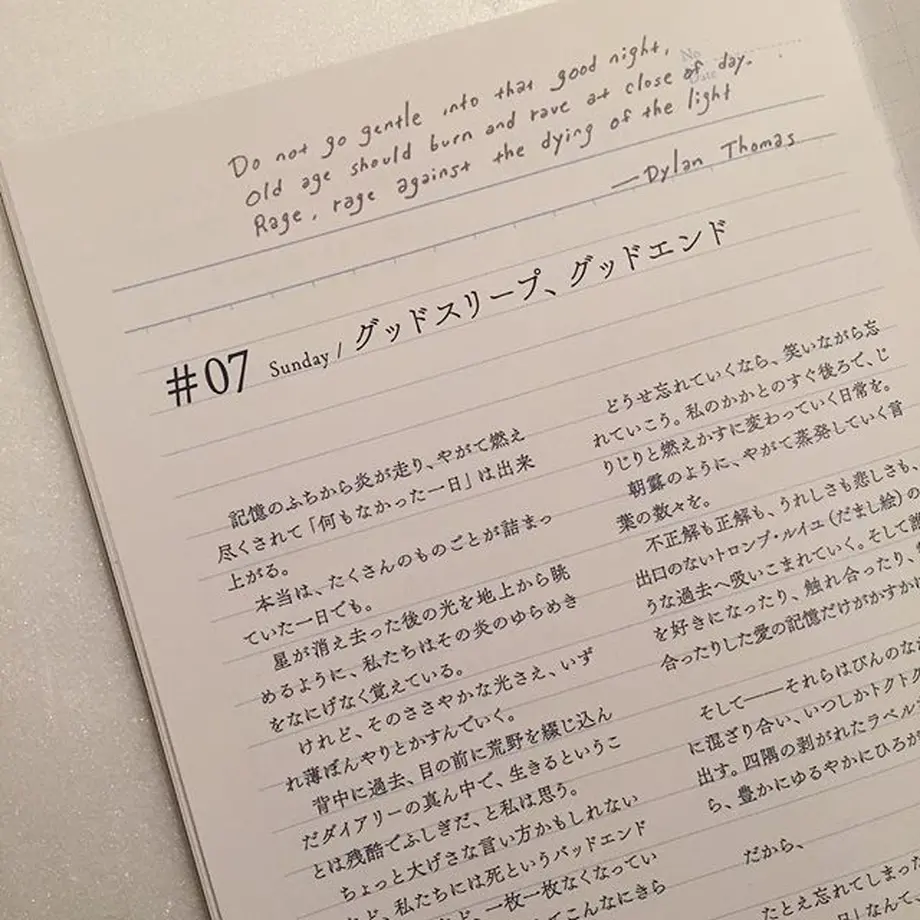 Do not go gentle into that good night,
Old age should burn and rave at close of day.
Rage, rage against the dying of the light
—Dylan Thomas
No
Date
#07 Sunday / グッドスリープ、グッドエンド
記憶のふちから炎が走り、やがて燃え
尽くされて「何もなかった一日」は出来
上がる。
本当は、たくさんのものごとが詰まっ
ていた一日でも。
星が消え去った後の光を地上から眺
めるように、私たちはその炎のゆらめき
をなにげなく覚えている。
けれど、そのささやかな光さえ、いず
れ薄ぼんやりとかすんでいく。
背中に過去、目の前に荒野を綴じ込ん
だダイアリーの真ん中で、生きるというこ
とは残酷でふしぎだ、と私は思う。
ちょっと大げさな言い方かもしれない
けど、私たちには死というバッドエンド
一枚一枚なくなってい
こんなにきら
どうせ忘れていくなら、笑いながら忘
れていこう。私のかかとのすぐ後ろで、じ
りじりと燃えかすに変わっていく日常を。
朝露のように、やがて蒸発していく言
葉の数々を。
不正解も正解も、うれしさも悲しさも、
出口のないトロンプ・ルイユ（だまし絵）の
うな過去へ吸いこまれていく。そして
を好きになったり、触れ合ったり、
合ったりした愛の記憶だけがかすか
そして――それらはびんのな
に混ざり合い、いつしかトクトク
出す。四隅の剥がれたラベル
ら、豊かにゆるやかにひろが
だから、
たとえ忘れてしまった
日」なんて、